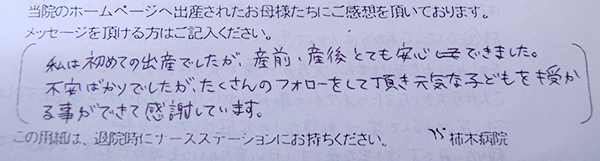 当院のホームページへ出産されたお母様たちにご感想を頂いております。
メッセージを頂ける方はご記入ください。
私は初めての出産でしたが、産前・産後とても安心できました。
不安ばかりでしたが、たくさんのフォローをして頂き元気な子どもを授か
る事ができて感謝しています。
この用紙は、退院時にナースステーションにお持ちください。 柿木病院